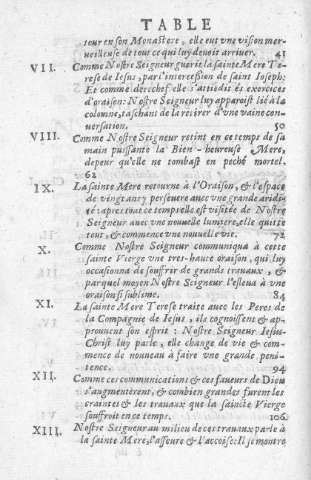 TABLE
teur en son Monastere, elle eut une vision mer-
veilleuse de tout ce qui luy devoit arriver. 41
VII. Comme Nostre Seigneur guerit la sainte Mere Te-
rese de Iesus, par l'intercession de saint Ioseph;
Et comme derechef elle s'attiedit és exercices
d'oraison: Nostre Seigneur luy apparoist lié à la
colomne, taschant de la retirer d'une vaine con-
uersation. 50
VIII. Comme Nostre Seigneur retint en ce temps de sa
main puissante la Bien-heureuse Mere,
de peur qu'elle ne tombast en peché mortel.
62
IX. La sainte Mere retourne à l'Oraison, & l'espace
de vingt any perseuere avec une grande aridi-
té: apres tout ce temps elle est visitée de Nostre
Seigneur avec une nouvelle lumiere, elle quitte
tout, & commence une nouvelle vie. 72
X. Comme Nostre Seigneur communiqua à cette
sainte Vierge une tres-haute oraison, qui luy
occasionna de souffrir de grands travaux, &
par quel moyen Nostre Seigneur l'esleua à une
oraison si sublime. 84
XI. La sainte Mere Terese traite avec les Peres de
la Compagnie de Iesus, ils cognoissent & ap-
prouuent son esprit: Nostre Seigneur Iesus-
Christ luy parle, elle change de vie & com-
mence de nouveau à faire une grande peni-
tence. 94
XII. Comme ces communications & ces faueurs de Dieu
s'augmenterent, & combien grandes furent les
craintes & les travaux que la saincte Vierge
souffroit en ce temps. 106
XIII. Nostre Seigneur au milieu de ces travaux parle à
la sainte Mere, l'asseure & l'accoise: Il se montre